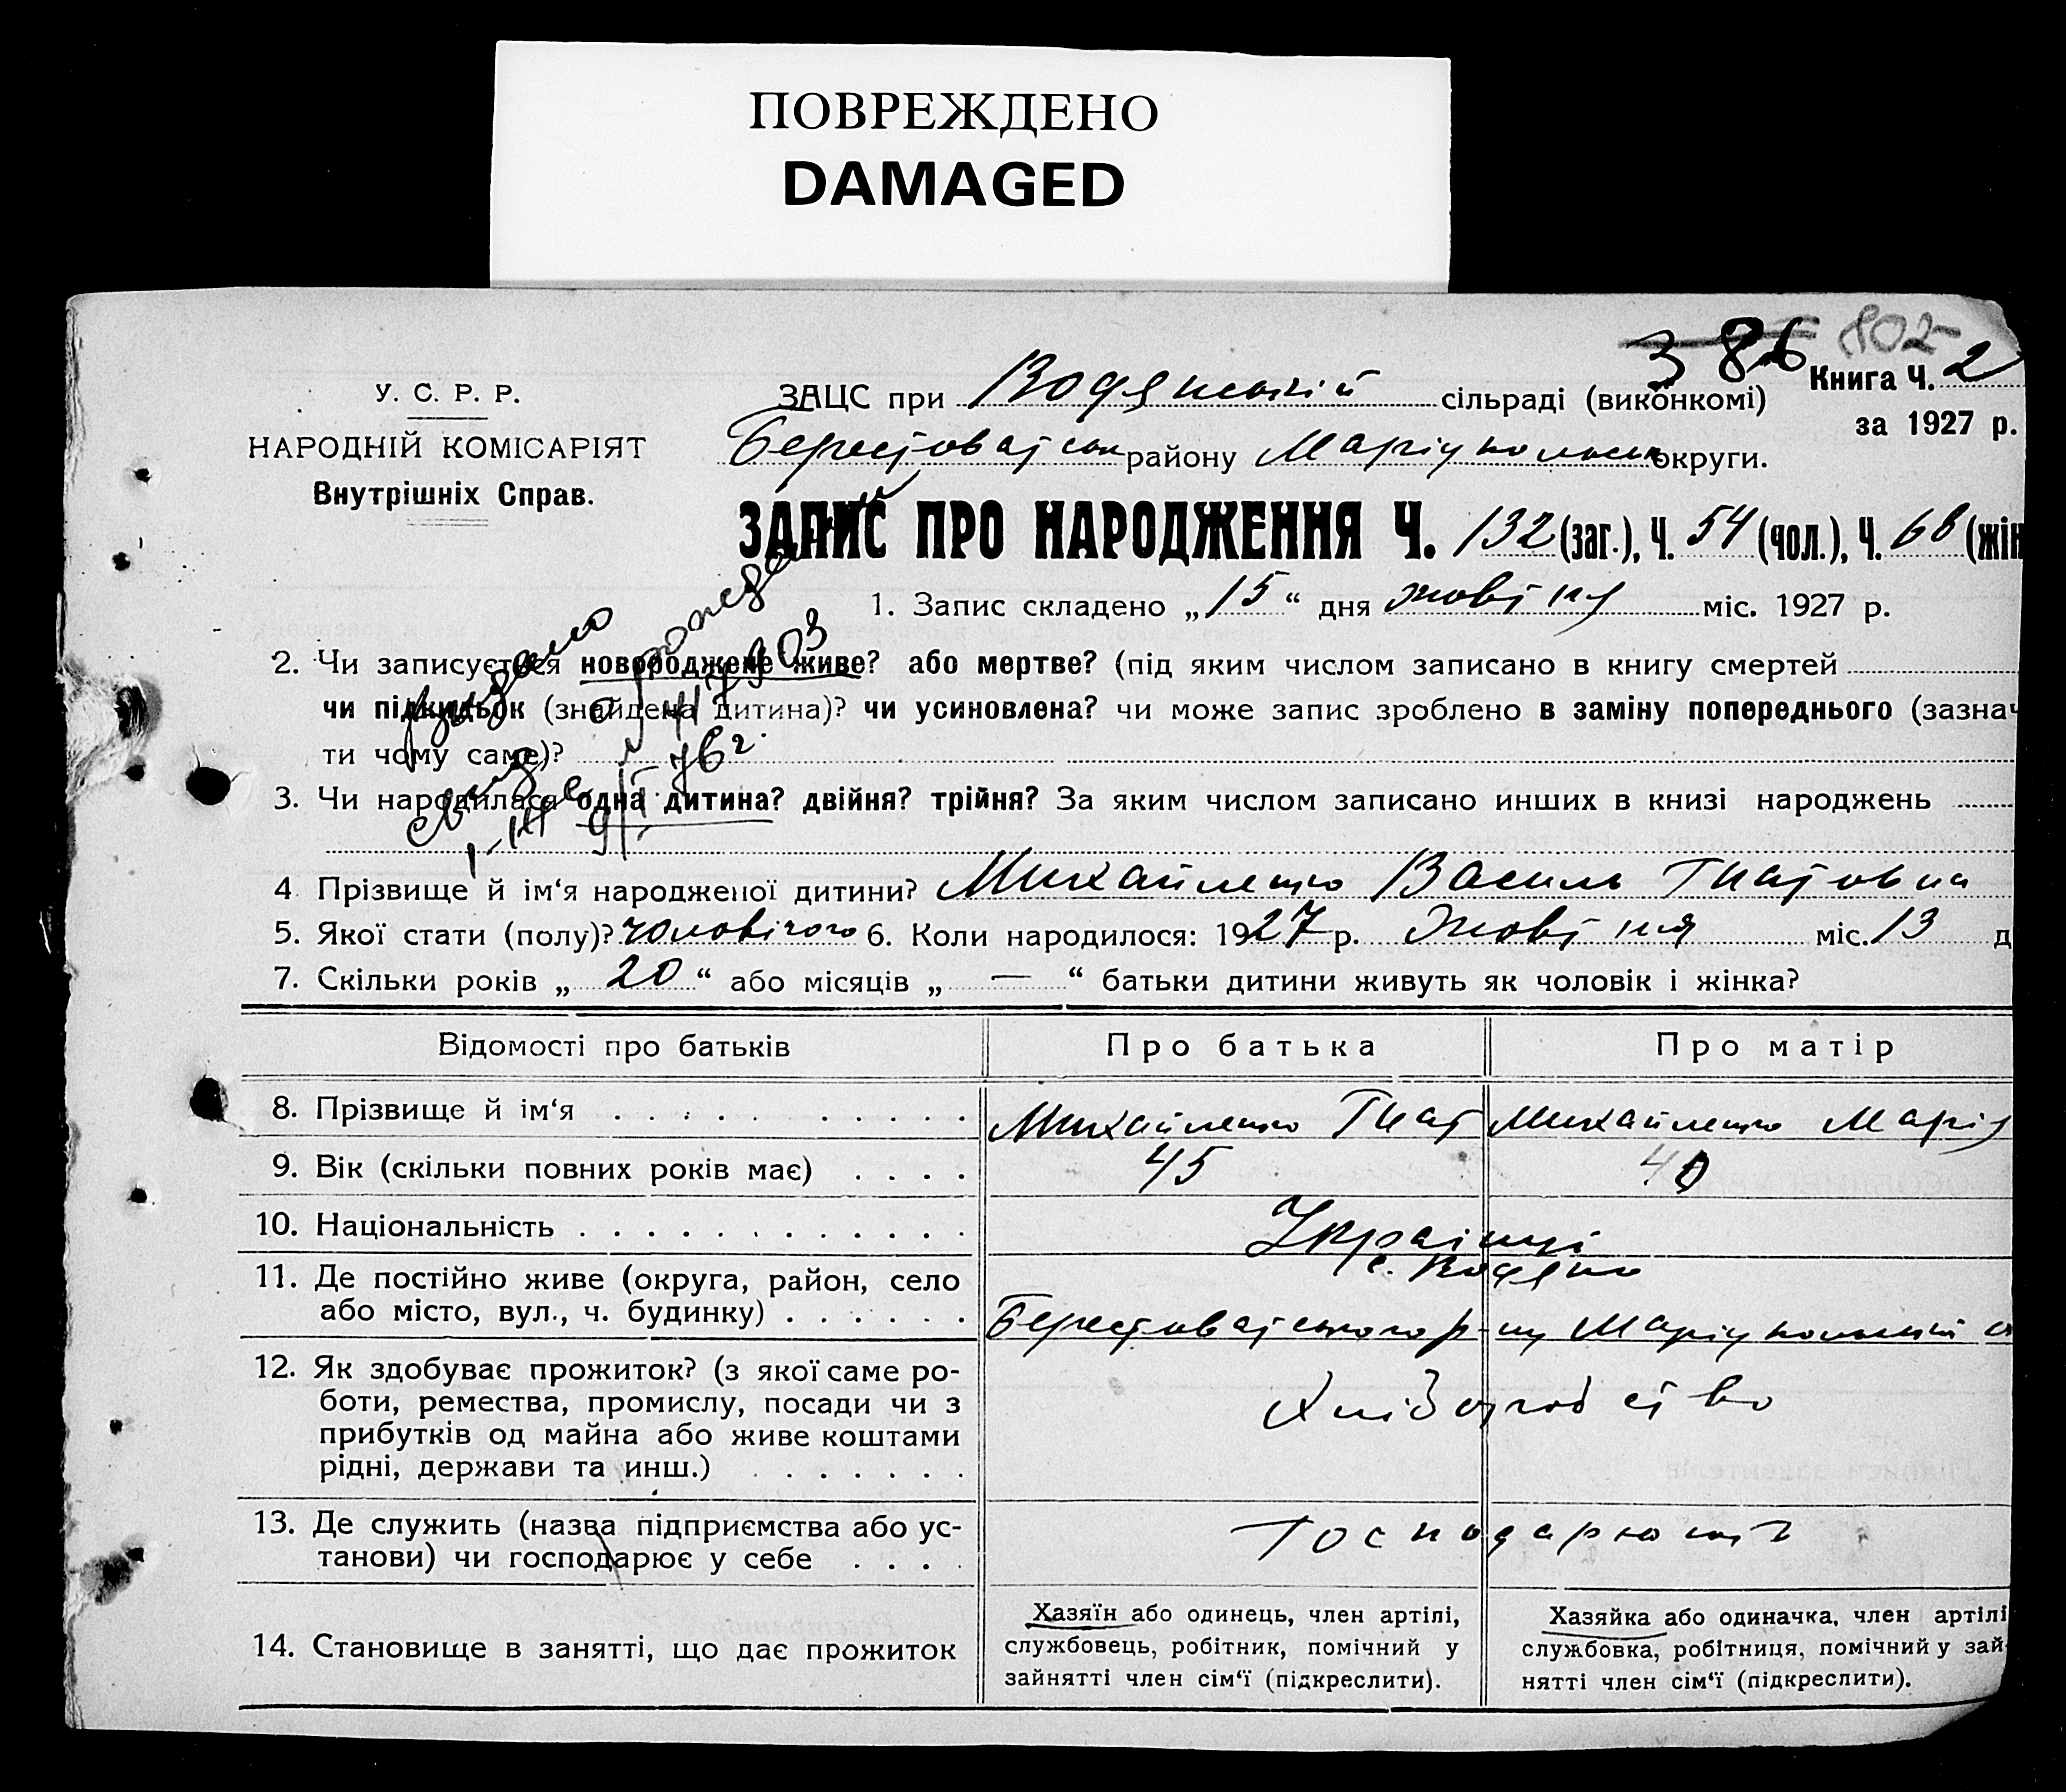 ПОВРЕЖДЕНО
DAMAGED
386 802
Книга Ч. 2
за 1927 р.
У. С. Р. Р.
НАРОДНІЙ КОМІСАРІЯТ
Внутрішніх Справ.
ЗАЦС при Водянській сільраді (виконкомі)
Берестоватськ району Маріупольськ округи.
ЗАПИС ПРО НАРОДЖЕННЯ Ч. 132 (заг.), Ч. 54 (чол.), Ч. 68 (жін
1. Запис складено „15“ дня жовтня міс. 1927 р.
2. Чи записується новороджене живе? або мертве? (під яким числом записано в книгу смертей
чи підкидьок (знайдена дитина)? чи усиновлена? чи може запис зроблено в заміну попереднього (зазнач
ти чому саме)?
3. Чи народилася одна дитина? двійня? трійня? За яким числом записано инших в книзі народжень
выдано
свид о рожден
9/I 76 г.
4 Прізвище й ім‘я народженої дитини? Михайленко Василь Гнатович
5. Якої стати (полу)? чоловічого 6. Коли народилося: 1927 р. Жовтня міс. 13 д
7. Скільки років „20“ або місяців „—“ батьки дитини живуть як чоловік і жінка?
Відомості про батьків Про батька Про матір
8. Прізвище й ім‘я Михайленко Гнат Михайленко Марія
9. Вік (скільки повних років має) 45 40
10. Національність Українці
11. Де постійно живе (округа, район, село с. Водяно
або місто, вул., ч. будинку) Берестоватського р-ну Маріупольської о
12. Як здобуває прожиток? (з якої саме ро-
боти, ремества, промислу, посади чи з Хліборобство
прибутків од майна або живе коштами
рідні, держави та инш.)
13. Де служить (назва підприємства або ус- Господарюють
танови) чи господарює у себе
14. Становище в занятті, що дає прожиток
Хазяїн або одинець, член артілі,
службовець, робітник, помічний у
зайнятті член сім‘ї (підкреслити).
Хазяйка або одиначка, член артілі
службовка, робітниця, помічний у зай-
нятті член сім‘ї (підкреслити).